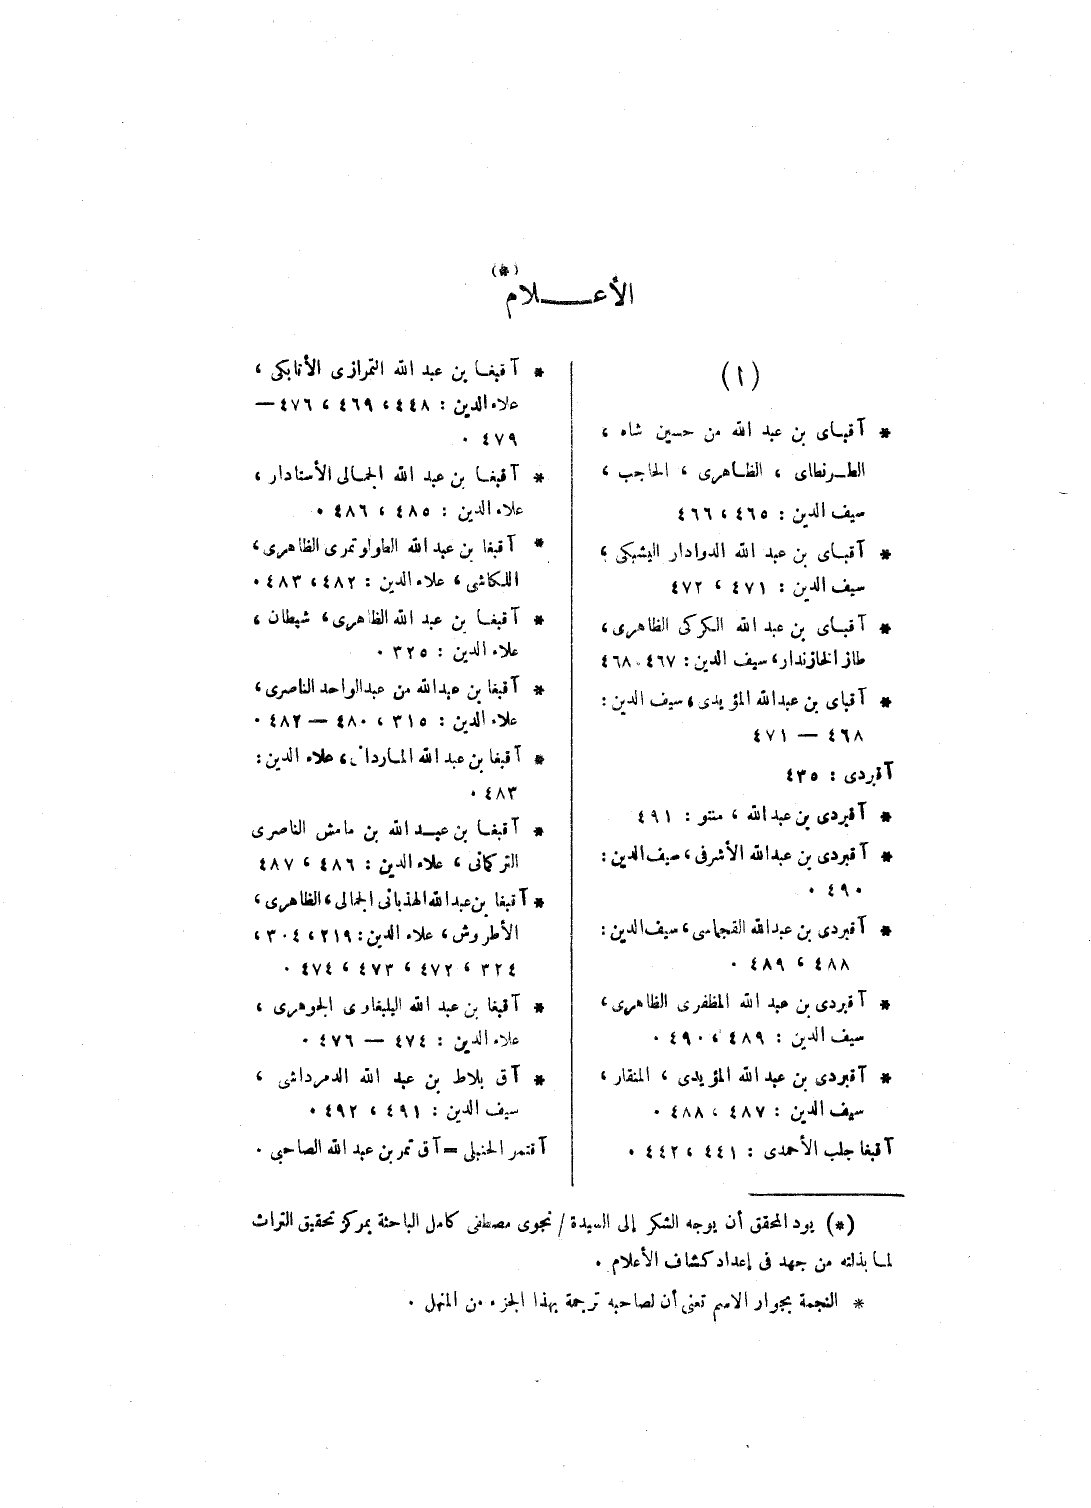 الأعـــلام (*)
(ا)
* آقبـاى بن عبد الله من حسين شاه ،
الطـرنطاى ، الظـاهرى ، الحاجب ،
سيف الدين : ٤٦٥ ، ٤٦٦
* آقبـاى بن عبد الله الدوادار اليشبكى ،
سيف الدين : ٤٧١ ، ٤٧٢
* آقبـاى بن عبد الله الكركى الظاهرى ،
طاز الخازندار، سيف الدين : ٤٦٧ ، ٤٦٨
* آقباى بن عبدالله المؤيدى ، سيف الدين :
٤٦٨ — ٤٧١
آقبردى : ٤٣٥
* آقبردى بن عبدالله ، منتو : ٤٩١
* آقبردى بن عبدالله الأشرفى ، سيف الدين :
٤٩٠ .
* آقبردى بن عبدالله القجماسى ، سيف الدين :
٤٨٨ ، ٤٨٩ .
* آقبردى بن عبد الله المظفرى الظاهرى ،
سيف الدين : ٤٨٩ ، ٤٩٠ .
* آقبردى بن عبد الله المؤيدى ، المنقار ،
سيف الدين : ٤٨٧ ، ٤٨٨ .
آقبغا جلب الأحمدى : ٤٤١ ، ٤٤٢ .
* آقبغـا بن عبد الله التمرازى الأتابكى ،
علاء الدين : ٤٤٨ ، ٤٦٩ ، ٤٧٦ —
٤٧٩ .
* آقبغـا بن عبد الله الجمـالى الأستادار ،
علاء الدين : ٤٨٥ ، ٤٨٦ .
* آقبغا بن عبد الله الطولوتمرى الظاهرى ،
اللكاشى ، علاء الدين : ٤٨٢ ، ٤٨٣ .
* آقبغـا بن عبد الله الظاهرى ، شيطان ،
علاء الدين : ٣٢٥ .
* آقبغا بن عبدالله من عبدالواحد الناصرى ،
علاء الدين : ٣١٥ ، ٤٨٠ — ٤٨٢ .
* آقبغا بن عبد الله المـاردانى ، علاء الدين :
٤٨٣ .
* آقبغـا بن عبـد الله بن مامش الناصرى
التركمانى ، علاء الدين : ٤٨٦ ، ٤٨٧
* آقبغا بن عبدالله الهذبانى الجمالى ، الظاهرى ،
الأطروش ، علاء الدين : ٢١٩ ، ٣٠٤ ،
٣٢٤ ، ٤٧٢ ، ٤٧٣ ، ٤٧٤ .
* آقبغا بن عبد الله اليلبغاوى الجوهرى ،
علاء الدين : ٤٧٤ — ٤٧٦ .
* آق بلاط بن عبد الله الدمرداشى ،
سيف الدين : ٤٩١ ، ٤٩٢ .
آقتمر الحنبلى = آق تمر بن عبد الله الصاحبى .
(*) يود المحقق أن يوجه الشكر إلى السيدة / نجوى مصطفى كامل الباحثة بمركز تحقيق التراث
لمـا بذلته من جهد فى إعداد كشاف الأعلام .
* النجمة بجوار الاسم تعنى أن لصاحبه ترجمة بهذا الجزء من المنهل .